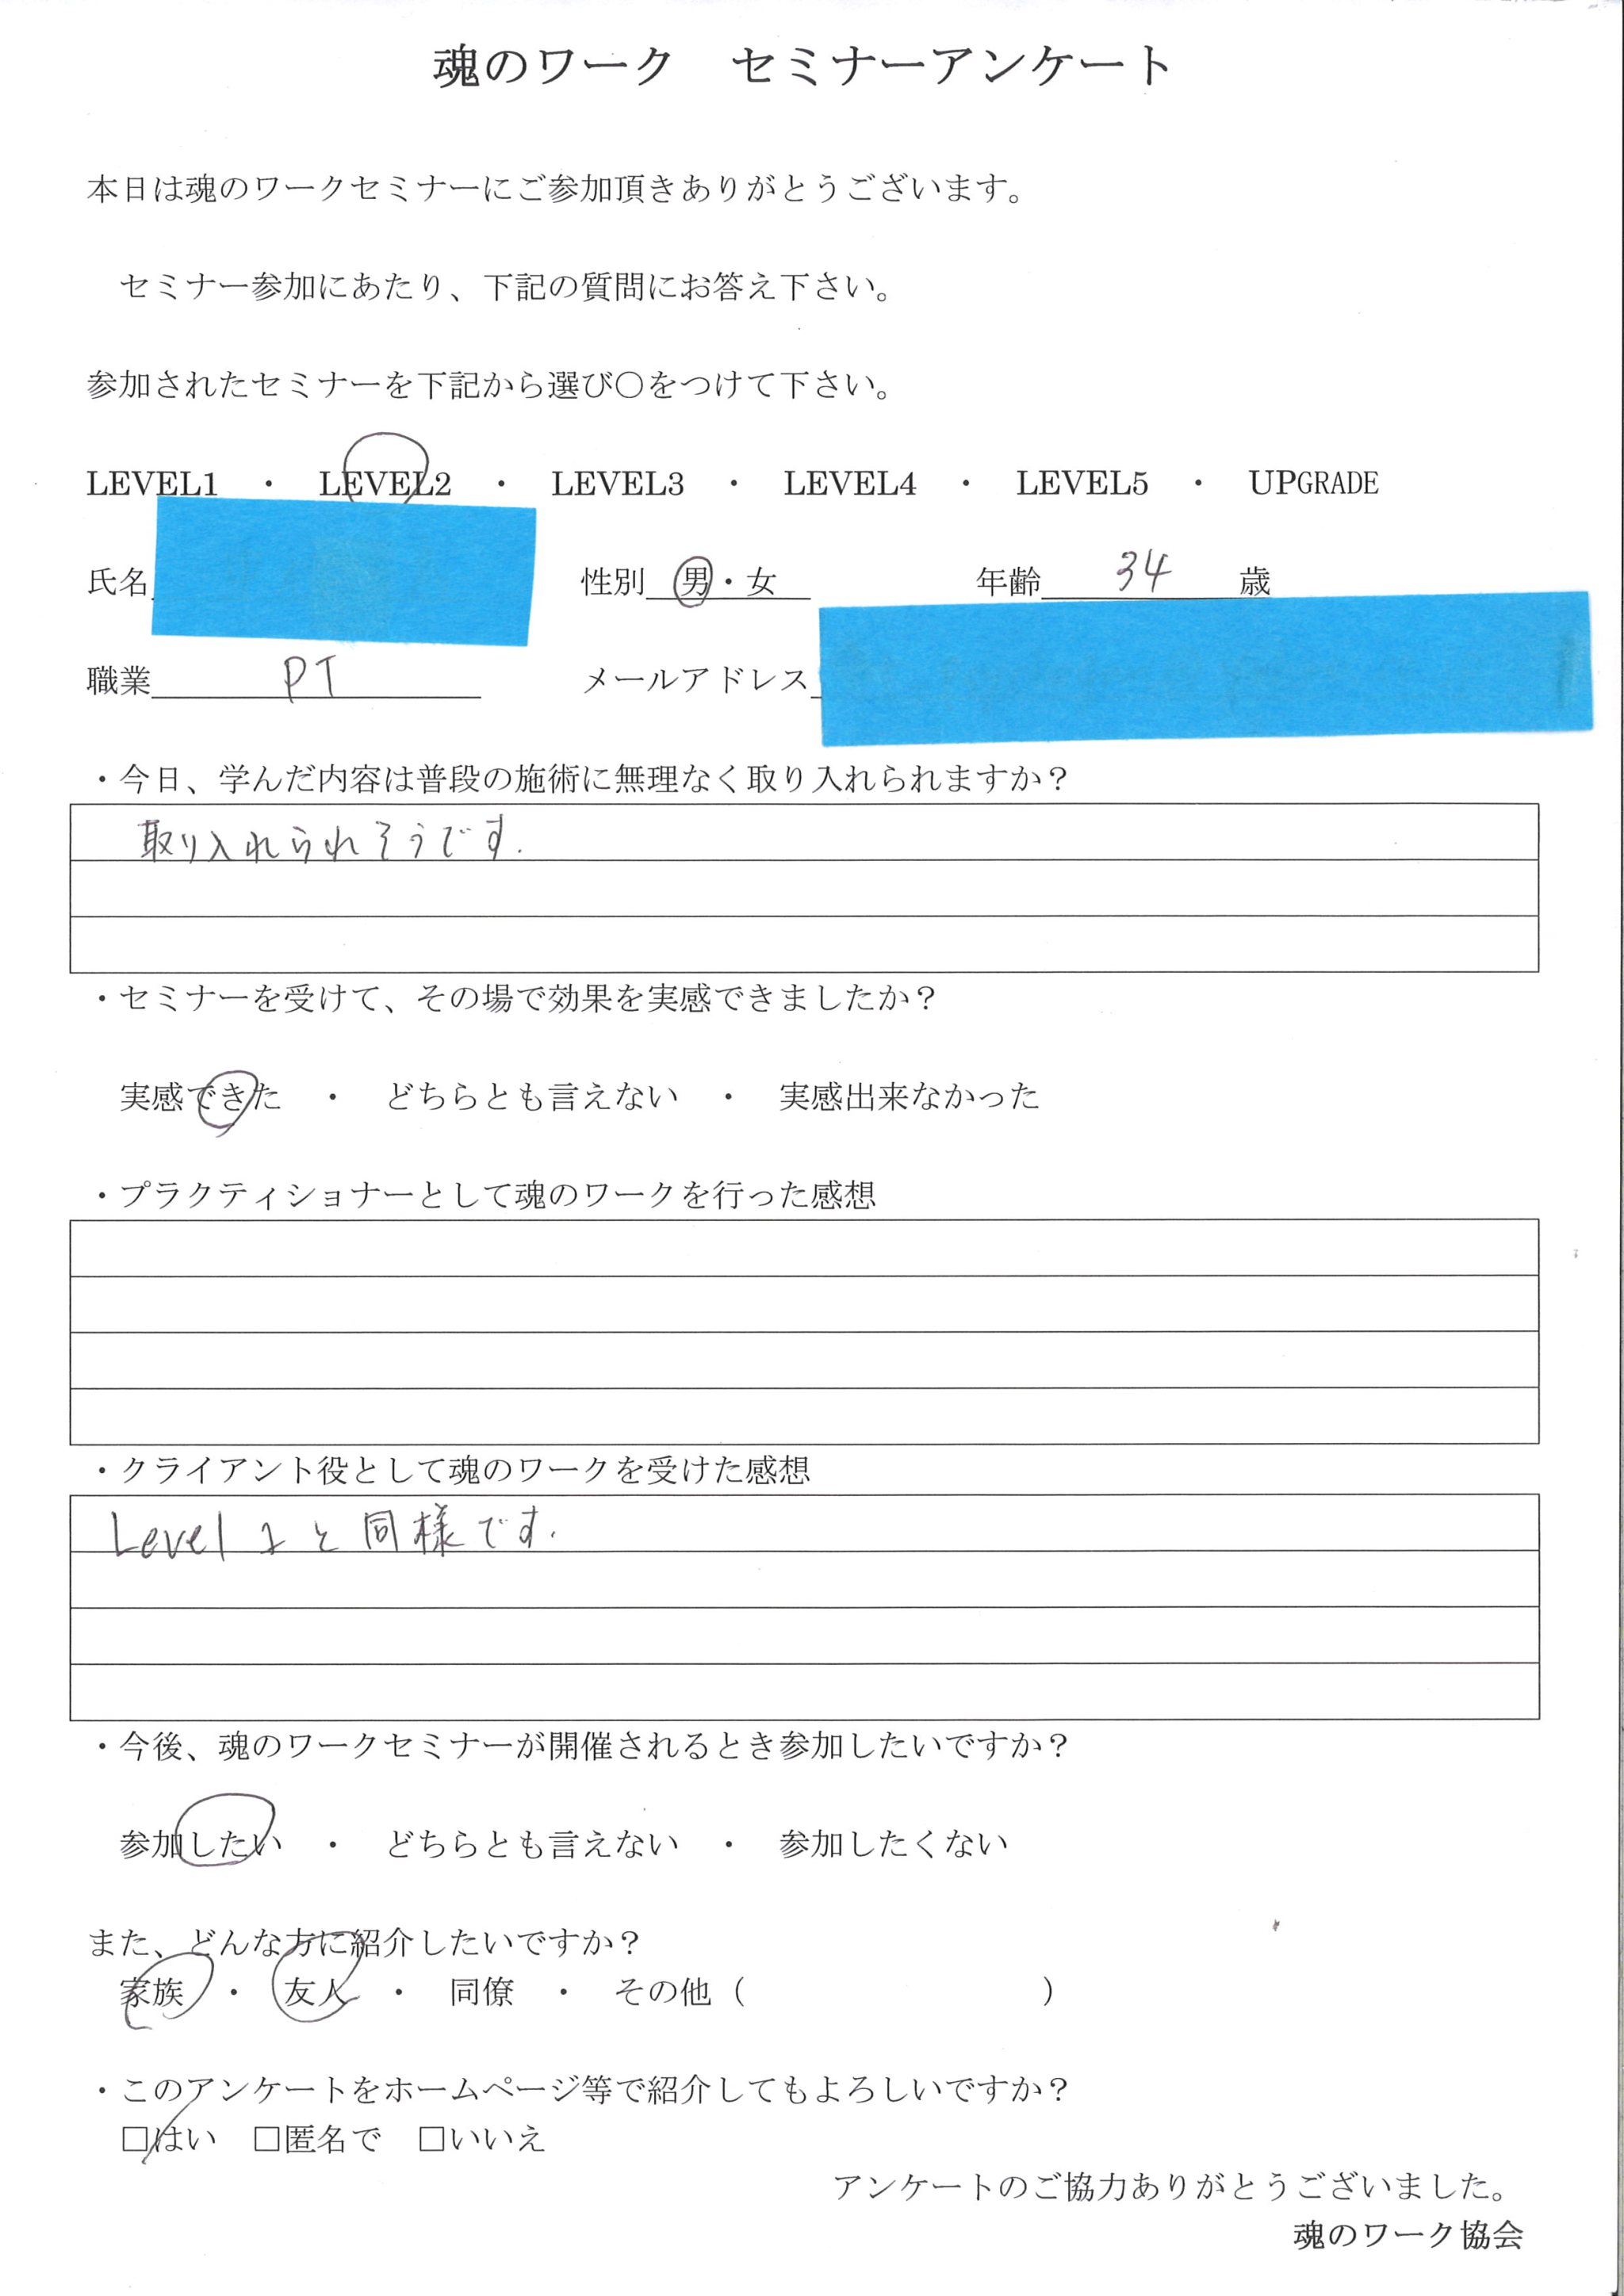 魂のワーク　セミナーアンケート
本日は魂のワークセミナーにご参加頂きありがとうございます。
セミナー参加にあたり、下記の質問にお答え下さい。
参加されたセミナーを下記から選び〇をつけて下さい。
LEVEL1　・　LEVEL2　・　LEVEL3　・　LEVEL4　・　LEVEL5　・　UPGRADE
氏名　性別　男・女　年齢　34　歳
職業　PT　メールアドレス
・今日、学んだ内容は普段の施術に無理なく取り入れられますか？
取り入れられそうです.
・セミナーを受けて、その場で効果を実感できましたか？
実感できた　・　どちらとも言えない　・　実感出来なかった
・プラクティショナーとして魂のワークを行った感想
・クライアント役として魂のワークを受けた感想
Level 1と同様です.
・今後、魂のワークセミナーが開催されるとき参加したいですか？
参加したい　・　どちらとも言えない　・　参加したくない
また、どんな方に紹介したいですか？
家族　・　友人　・　同僚　・　その他（　　　　　　　　　）
・このアンケートをホームページ等で紹介してもよろしいですか？
□はい　□匿名で　□いいえ
アンケートのご協力ありがとうございました。
魂のワーク協会